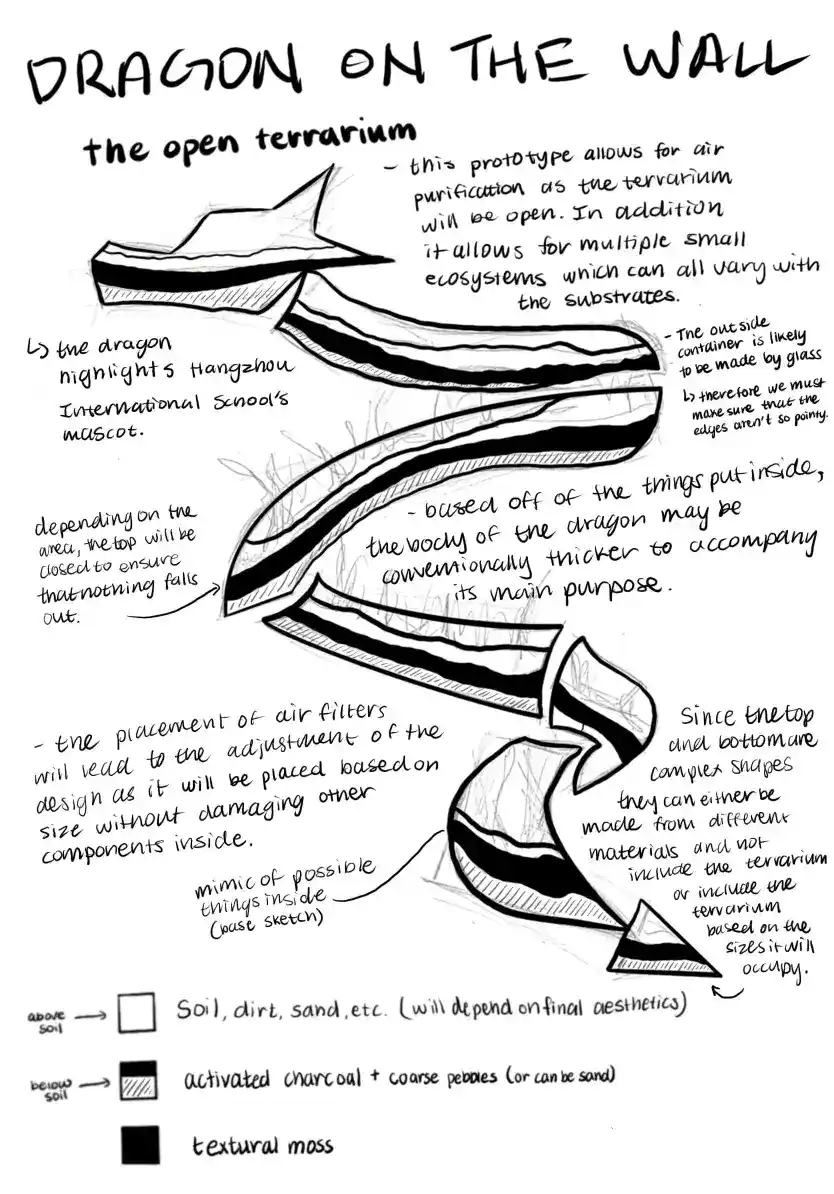 DRAGON ON THE WALL
the open terrarium
- this prototype allows for air
purification as the terrarium
will be open. In addition
it allows for multiple small
ecosystems which can all vary with
the substrates.
↳ the dragon
highlights Hangzhou
International School's
mascot.
- The outside
container is likely
to be made by glass
↳ therefore we must
make sure that the
edges aren't so pointy.
- based off of the things put inside,
the body of the dragon may be
conventionally thicker to accompany
its main purpose.
depending on the
area, the top will be
closed to ensure
that nothing falls
out.
- the placement of air filters
will lead to the adjustment of the
design as it will be placed based on
size without damaging other
components inside.
mimic of possible
things inside
(base sketch)
Since the top
and bottom are
complex shapes
they can either be
made from different
materials and not
include the terrarium
or include the
terrarium
based on the
sizes it will
occupy.
above
soil
Soil, dirt, sand, etc. (will depend on final aesthetics)
below
soil
activated charcoal + coarse pebbles (or can be sand)
textural moss